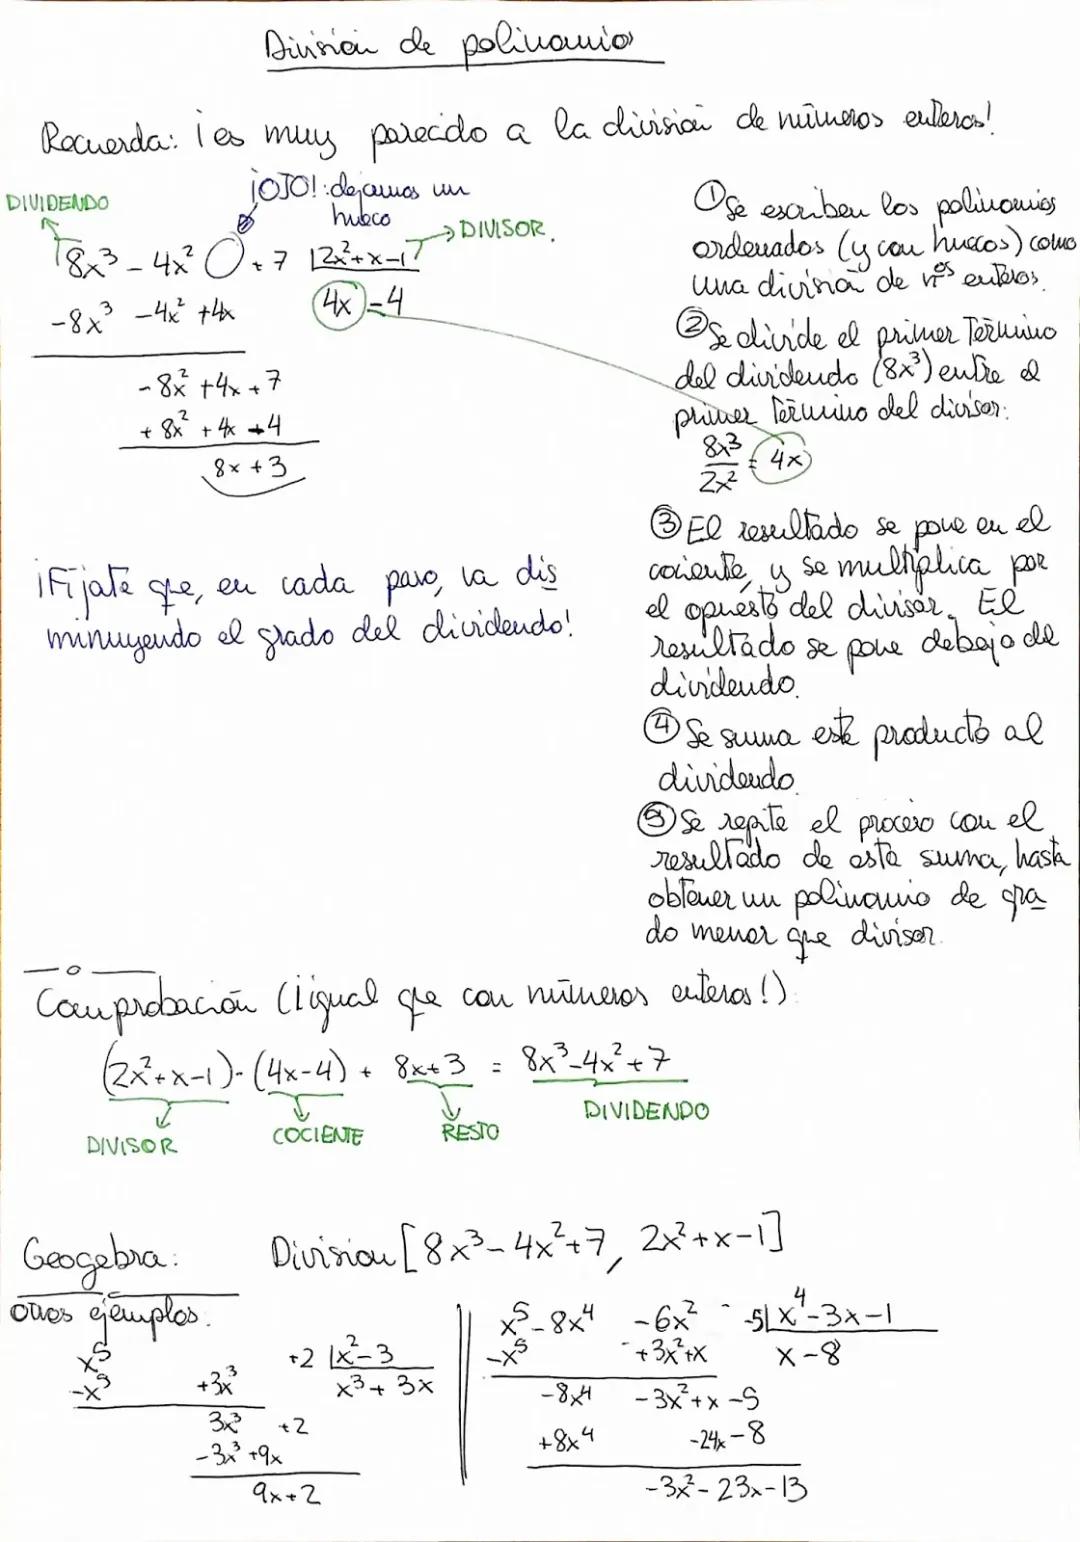 División de polinomios
Recuerda: ¡es muy parecido a la división de números enteros!
¡OJO!: dejamos un
hueco
DIVIDENDO
DIVISOR.
8x³ - 4x² + 7 | 2x²+x-1
-8x³ -4x² +4x
4x -4
-8x² +4x +7
+8x² +4x -4
8x +3
¡Fíjate que, en cada paso, va dis
minuyendo el grado del dividendo!
① Se escriben los polinomios
ordenados (y con huecos) como
una división de nºs enteros.
② Se divide el primer término
del dividendo (8x³) entre el
primer término del divisor:
8x³/2x² = 4x
③ El resultado se pone en el
cociente, y se multiplica por
el opuesto del divisor. El
resultado se pone debajo del
dividendo.
④ Se suma este producto al
dividendo.
⑤ Se repite el proceso con el
resultado de esta suma, hasta
obtener un polinomio de gra
do menor que divisor.
Comprobación (¡igual que con números enteros!)
(2x²+x-1)·(4x-4) + 8x+3 = 8x³-4x²+7
DIVISOR COCIENTE RESTO DIVIDENDO
Geogebra: Division[8x³-4x²+7, 2x²+x-1]
otros ejemplos:
x⁵ +2 | x²-3
-x⁵ +3x³
x³+3x
3x³ +2
-3x³ +9x
9x+2
x⁵-8x⁴ -6x² -5 | x⁴-3x-1
-x⁵ +3x²+x
x-8
-8x⁴ -3x²+x-5
+8x⁴ -24x-8
-3x²-23x-13